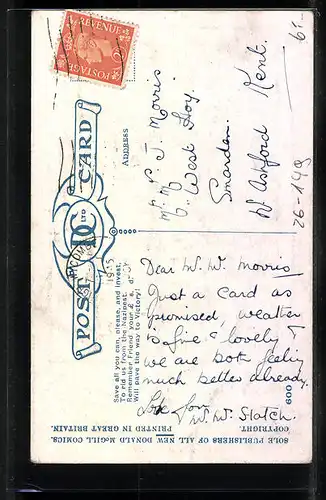 POSTAGE REVENUE
POST CARD
D C LTD
ADDRESS
Mr. Mrs. J. Morris
West Hoy.
Smarden.
Nr Ashford Kent.
Save all you can, please, and invest.
To rid us from the Nazipest.
Remember Friend your £. s. d.
Will pave the way to Victory!
1945
Dear Mr. Mrs. Morris
Just a card as
promised, weather
is fine & lovely &
we are both feeling
much better already.
Love from
600
SOLE PUBLISHERS OF ALL NEW DONALD McGILL COMICS.
COPYRIGHT. PRINTED IN GREAT BRITAIN.
26-149
6-